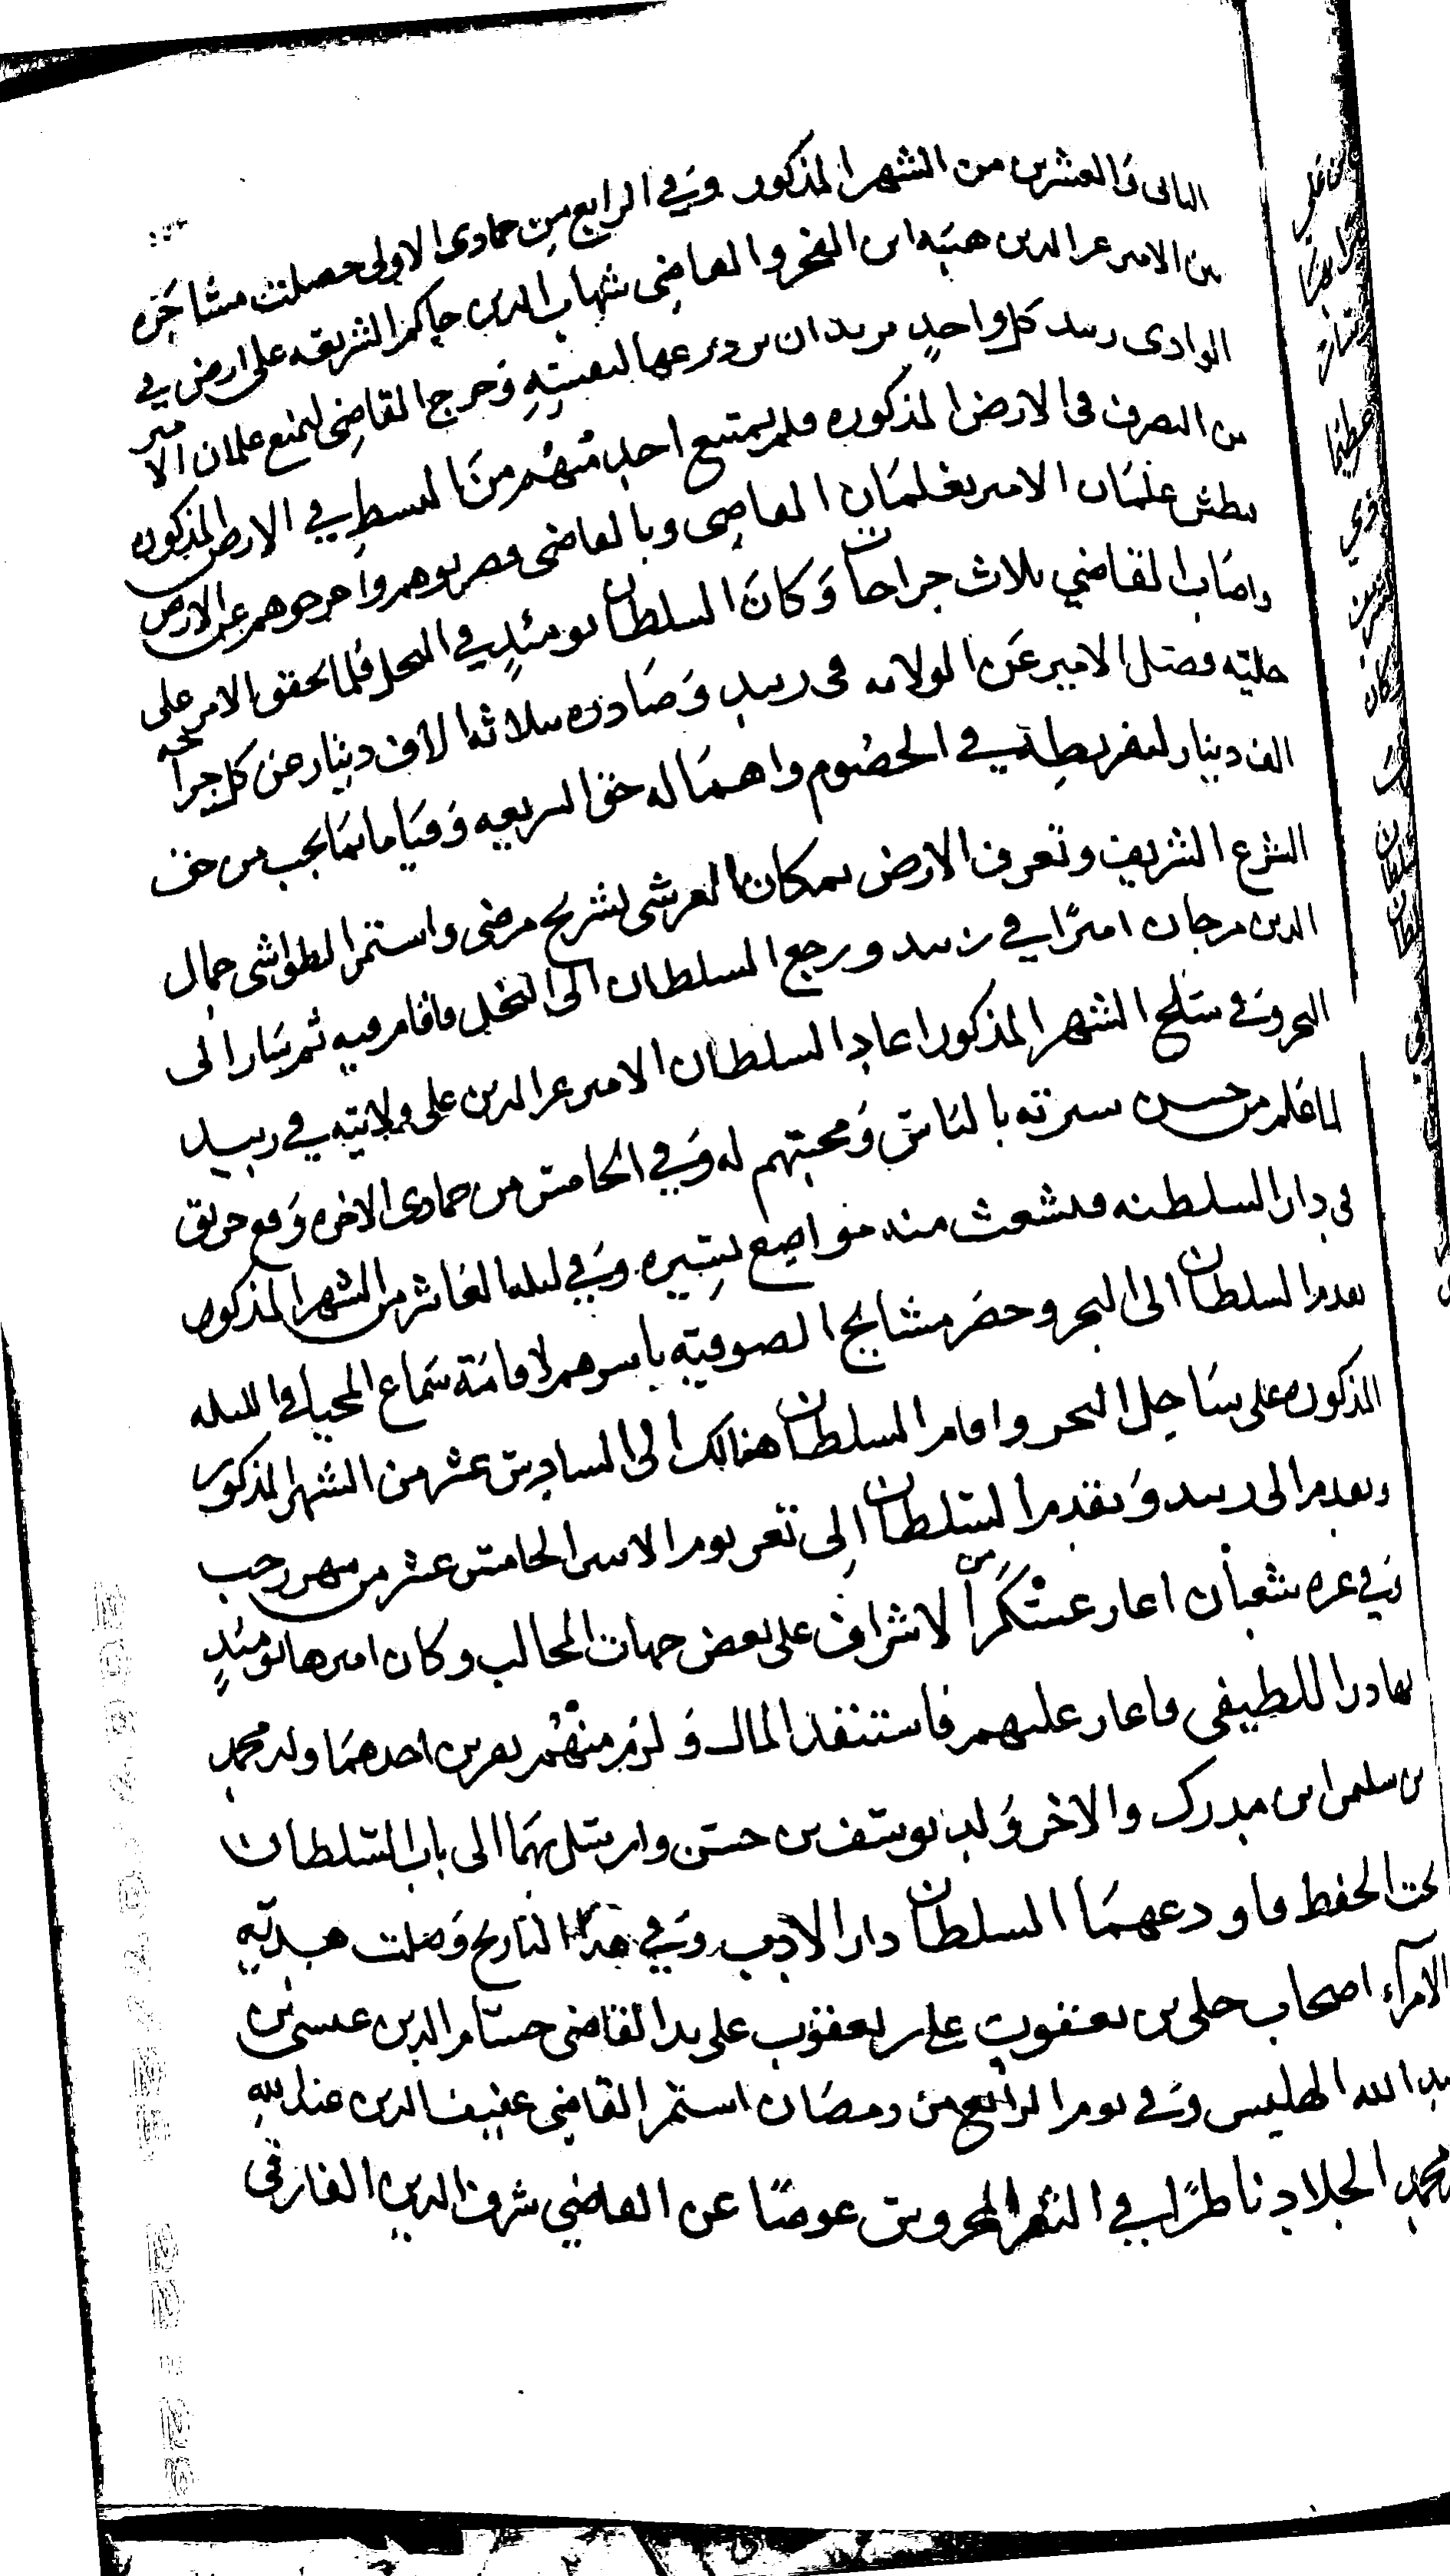 الثانى والعشرين من الشهر المذكور وفي الرابع من جمادى الاولى حصلت مشاجره
بين الامير عز الدين هبه ابن الفخر والقاضي شهاب الدين حاكم الشريعه على ارض في
الوادى زبيد كل واحد يريد ان يزدرعها لنفسه وخرج القاضي ليمنع غلمان الامير
من التصرف فى الارض المذكوره فلم يمتنع احد منهم من البسط في الارض المذكوره
بطش غلمان الامير بغلمان القاضى وبالقاضى وضربوهم واخرجوهم عن الارض
واصاب القاضي ثلاث جراحات وكان السلطان يومئذ في النخل فلما تحقق الامر على
جليته فصل الامير عن الولايه فى زبيد وصادره بثلاثه الاف دينار عن كل جراحه
الف دينار لتفريطه في الخصوم واهماله حق الشريعه وقياما بما يجب من حق
الشرع الشريف وتعرف الارض بمكان العرشى بشريج مرضى واستمر الطواشى جمال
الدين مرجان اميرا في زبيد ورجع السلطان الى النخل فاقام فيه ثم سار الى
البحر وفي سلخ الشهر المذكور اعاد السلطان الامير عز الدين على ولايته في زبيد
لما علم من حسن سيرته بالناس ومحبتهم له وفي الخامس من جمادى الاخره وقع حريق
فى دار السلطنه فتشعث منه مواضع يسيره وفي ليله العاشر من الشهر المذكور
تقدم السلطان الى البحر وحضر مشايخ الصوفيه باسرهم لاقامة سماع المحيا في الليله
المذكوره على ساحل البحر واقام السلطان هنالك الى السادس عشر من الشهر المذكور
وتقدم الى زبيد وتقدم السلطان الى تعز يوم الاثنين الخامس عشر من شهر رجب
وفي غره شعبان اغار عسكرا من الاشراف على بعض جهات المحالب وكان اميرها يومئذ
بهادر اللطيفى فاغار عليهم فاستنقذ المال ولزم منهم نفرين احدهما ولد محمد
بن سليمن ابن مدرك والاخر ولد يوسف بن حسن وارسل بهما الى باب السلطان
تحت الحفظ فاودعهما السلطان دار الادب وفي هذا التاريخ وصلت هديه
الامرآء اصحاب حلى بن يعقوب على بدا القاضى حسام الدين عيسى بن
عبد الله الهليس وفي يوم الرابع من رمضان استمر القاضي عفيف الدين عبد الله
محمد الجلاد ناظرا في الثغر المحروس عوضا عن القاضي شرف الدين الفارقى